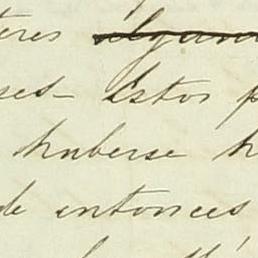 teres alguna
ses- Estos p
huberse h
de entonces